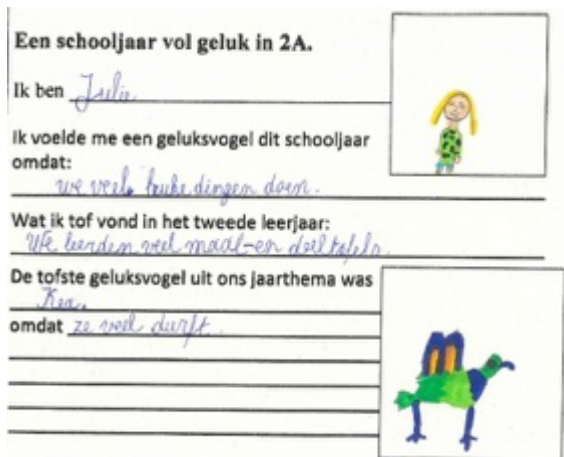 Een schooljaar vol geluk in 2A.
Ik ben Julie
Ik voelde me een geluksvogel dit schooljaar
omdat:
we veel leuke dingen doen.
Wat ik tof vond in het tweede leerjaar:
We leerden veel maal-en deeltafels.
De tofste geluksvogel uit ons jaarthema was
Kea.
omdat ze veel durft.